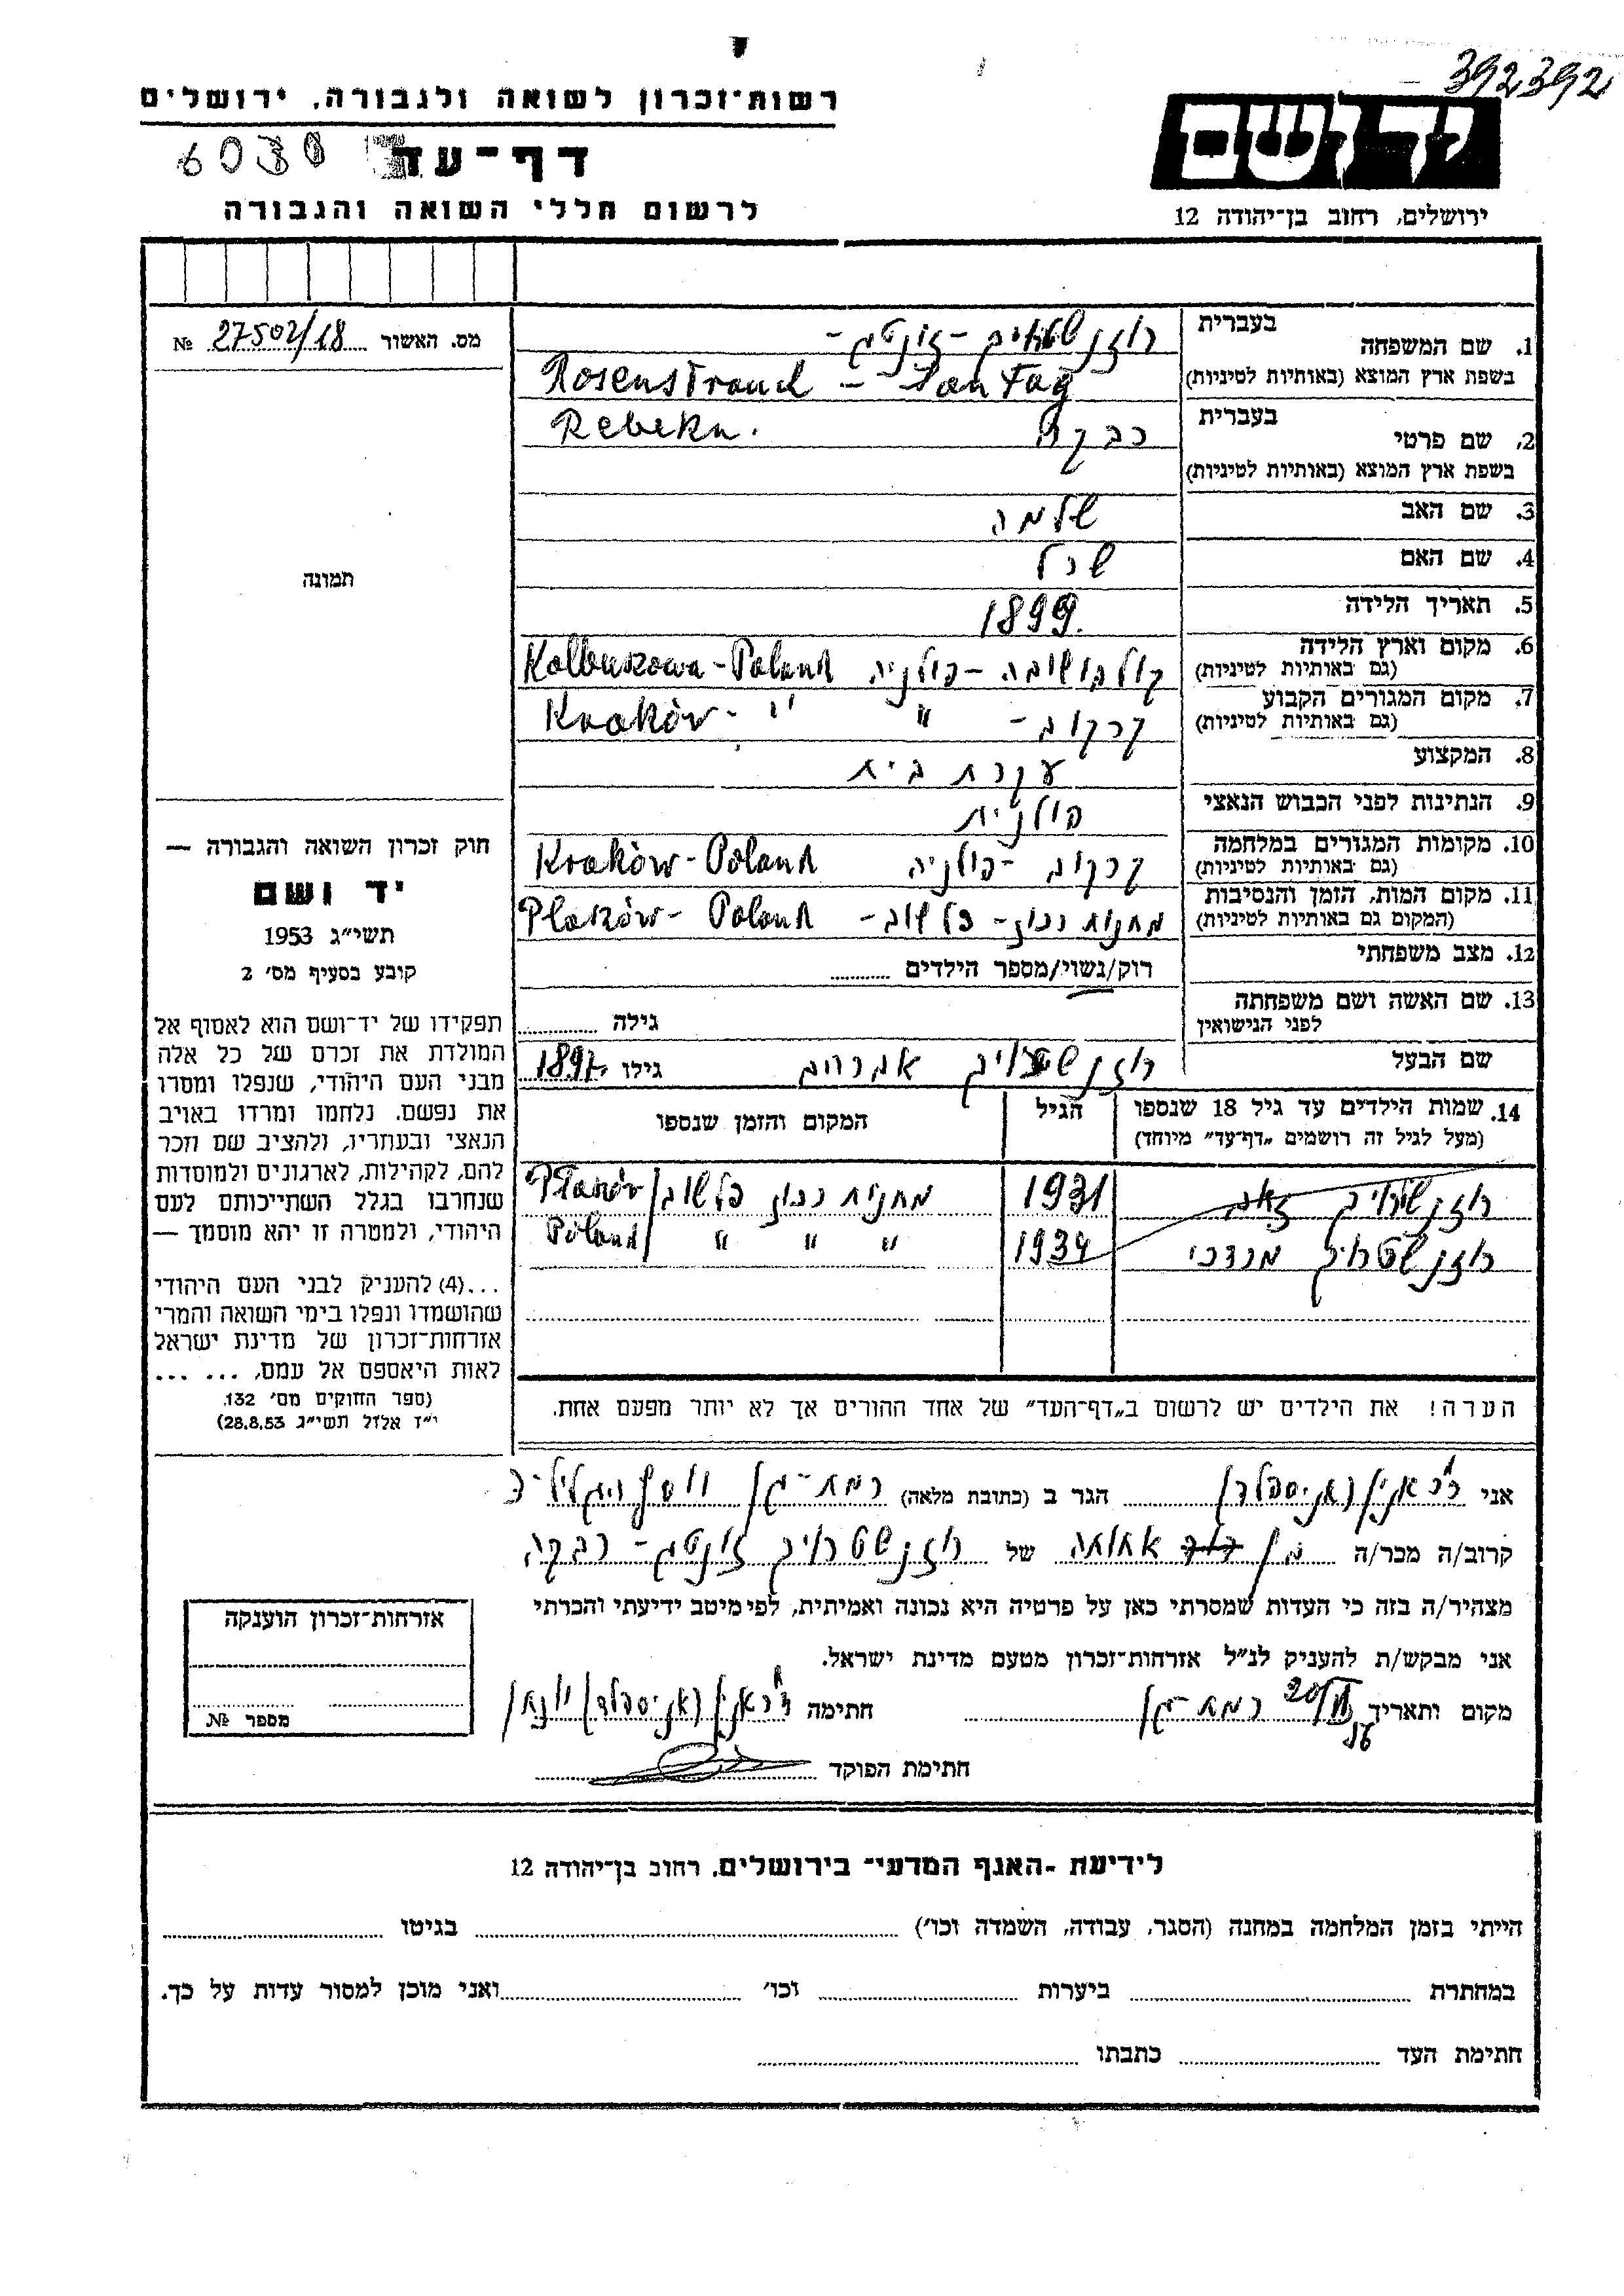 392392
רשות־זכרון לשואה ולגבורה, ירושלים
יד ושם
דף־עד
ירושלים, רחוב בן־יהודה 12
לרשום חללי השואה והגבורה
מס. האשור 27502/18 №
תמונה
חוק זכרון השואה והגבורה —
יד ושם
תשי״ג 1953
קובע בסעיף מס׳ 2
תפקידו של יד־ושם הוא לאסוף אל
המולדת את זכרם של כל אלה
מבני העם היהודי, שנפלו ומסרו
את נפשם, נלחמו ומרדו באויב
הנאצי ובעוזריו, ולהציב שם וזכר
להם, לקהילות, לארגונים ולמוסדות
שנחרבו בגלל השתייכותם לעם
היהודי, ולמטרה זו יהא מוסמך —
...(4) להעניק לבני העם היהודי
שהושמדו ונפלו בימי השואה והמרי
אזרחות־זכרון של מדינת ישראל
לאות היאספם אל עמם, ... ...
(ספר החוקים מס׳ 132
י״ז אלול תשי״ג 28.8.53)
1. שם המשפחה בעברית רוזנשטרויך - זונטג -
בשפת ארץ המוצא (באותיות לטיניות) Rosenstrauch - Sontag
2. שם פרטי בעברית רבקה Rebeka.
בשפת ארץ המוצא (באותיות לטיניות)
3. שם האב שלמה
4. שם האם
5. תאריך הלידה 1899.
6. מקום וארץ הלידה קולבושובה - פולניה Kolbuszowa - Poland
(גם באותיות לטיניות)
7. מקום המגורים הקבוע קרקוב - " Kraków - "
(גם באותיות לטיניות)
8. המקצוע עקרת בית
9. הנתינות לפני הכבוש הנאצי פולנית
10. מקומות המגורים במלחמה קרקוב - פולניה Kraków - Poland
(גם באותיות לטיניות)
11. מקום המות, הזמן והנסיבות מחנות רכוז - פלשוב - Płaszów - Poland
(המקום גם באותיות לטיניות)
12. מצב משפחתי רוק/נשוי/מספר הילדים
13. שם האשה ושם משפחתה
לפני הנישואין גילה
שם הבעל רוזנשטרויך אברהם גילו 1897
14. שמות הילדים עד גיל 18 שנספו הגיל המקום והזמן שנספו
(מעל לגיל זה רושמים „דף־עד״ מיוחד)
רוזנשטרויך זאב 1931 מחנות רכוז פלשוב / Płaszów
רוזנשטרויך מרדכי 1934 " " " Poland
הערה! את הילדים יש לרשום ב„דף־העד״ של אחד ההורים אך לא יותר מפעם אחת.
אני הגר ב (כתובת מלאה) רמת-גן
קרוב/ה מכר/ה בן דוד אחותה של רוזנשטרויך זונטג - רבקה
מצהיר/ה בזה כי העדות שמסרתי כאן על פרטיה היא נכונה ואמיתית, לפי מיטב ידיעתי והכרתי
אני מבקש/ת להעניק לנ״ל אזרחות־זכרון מטעם מדינת ישראל.
מקום ותאריך רמת-גן חתימה
חתימת הפוקד
אזרחות־זכרון הוענקה
מספר №
לידיעת -האגף המדעי־ בירושלים, רחוב בן־יהודה 12
הייתי בזמן המלחמה במחנה (הסגר, עבודה, השמדה וכו׳) בגיטו
במחתרת ביערות וכו׳ ואני מוכן למסור עדות על כך.
חתימת העד כתבתו